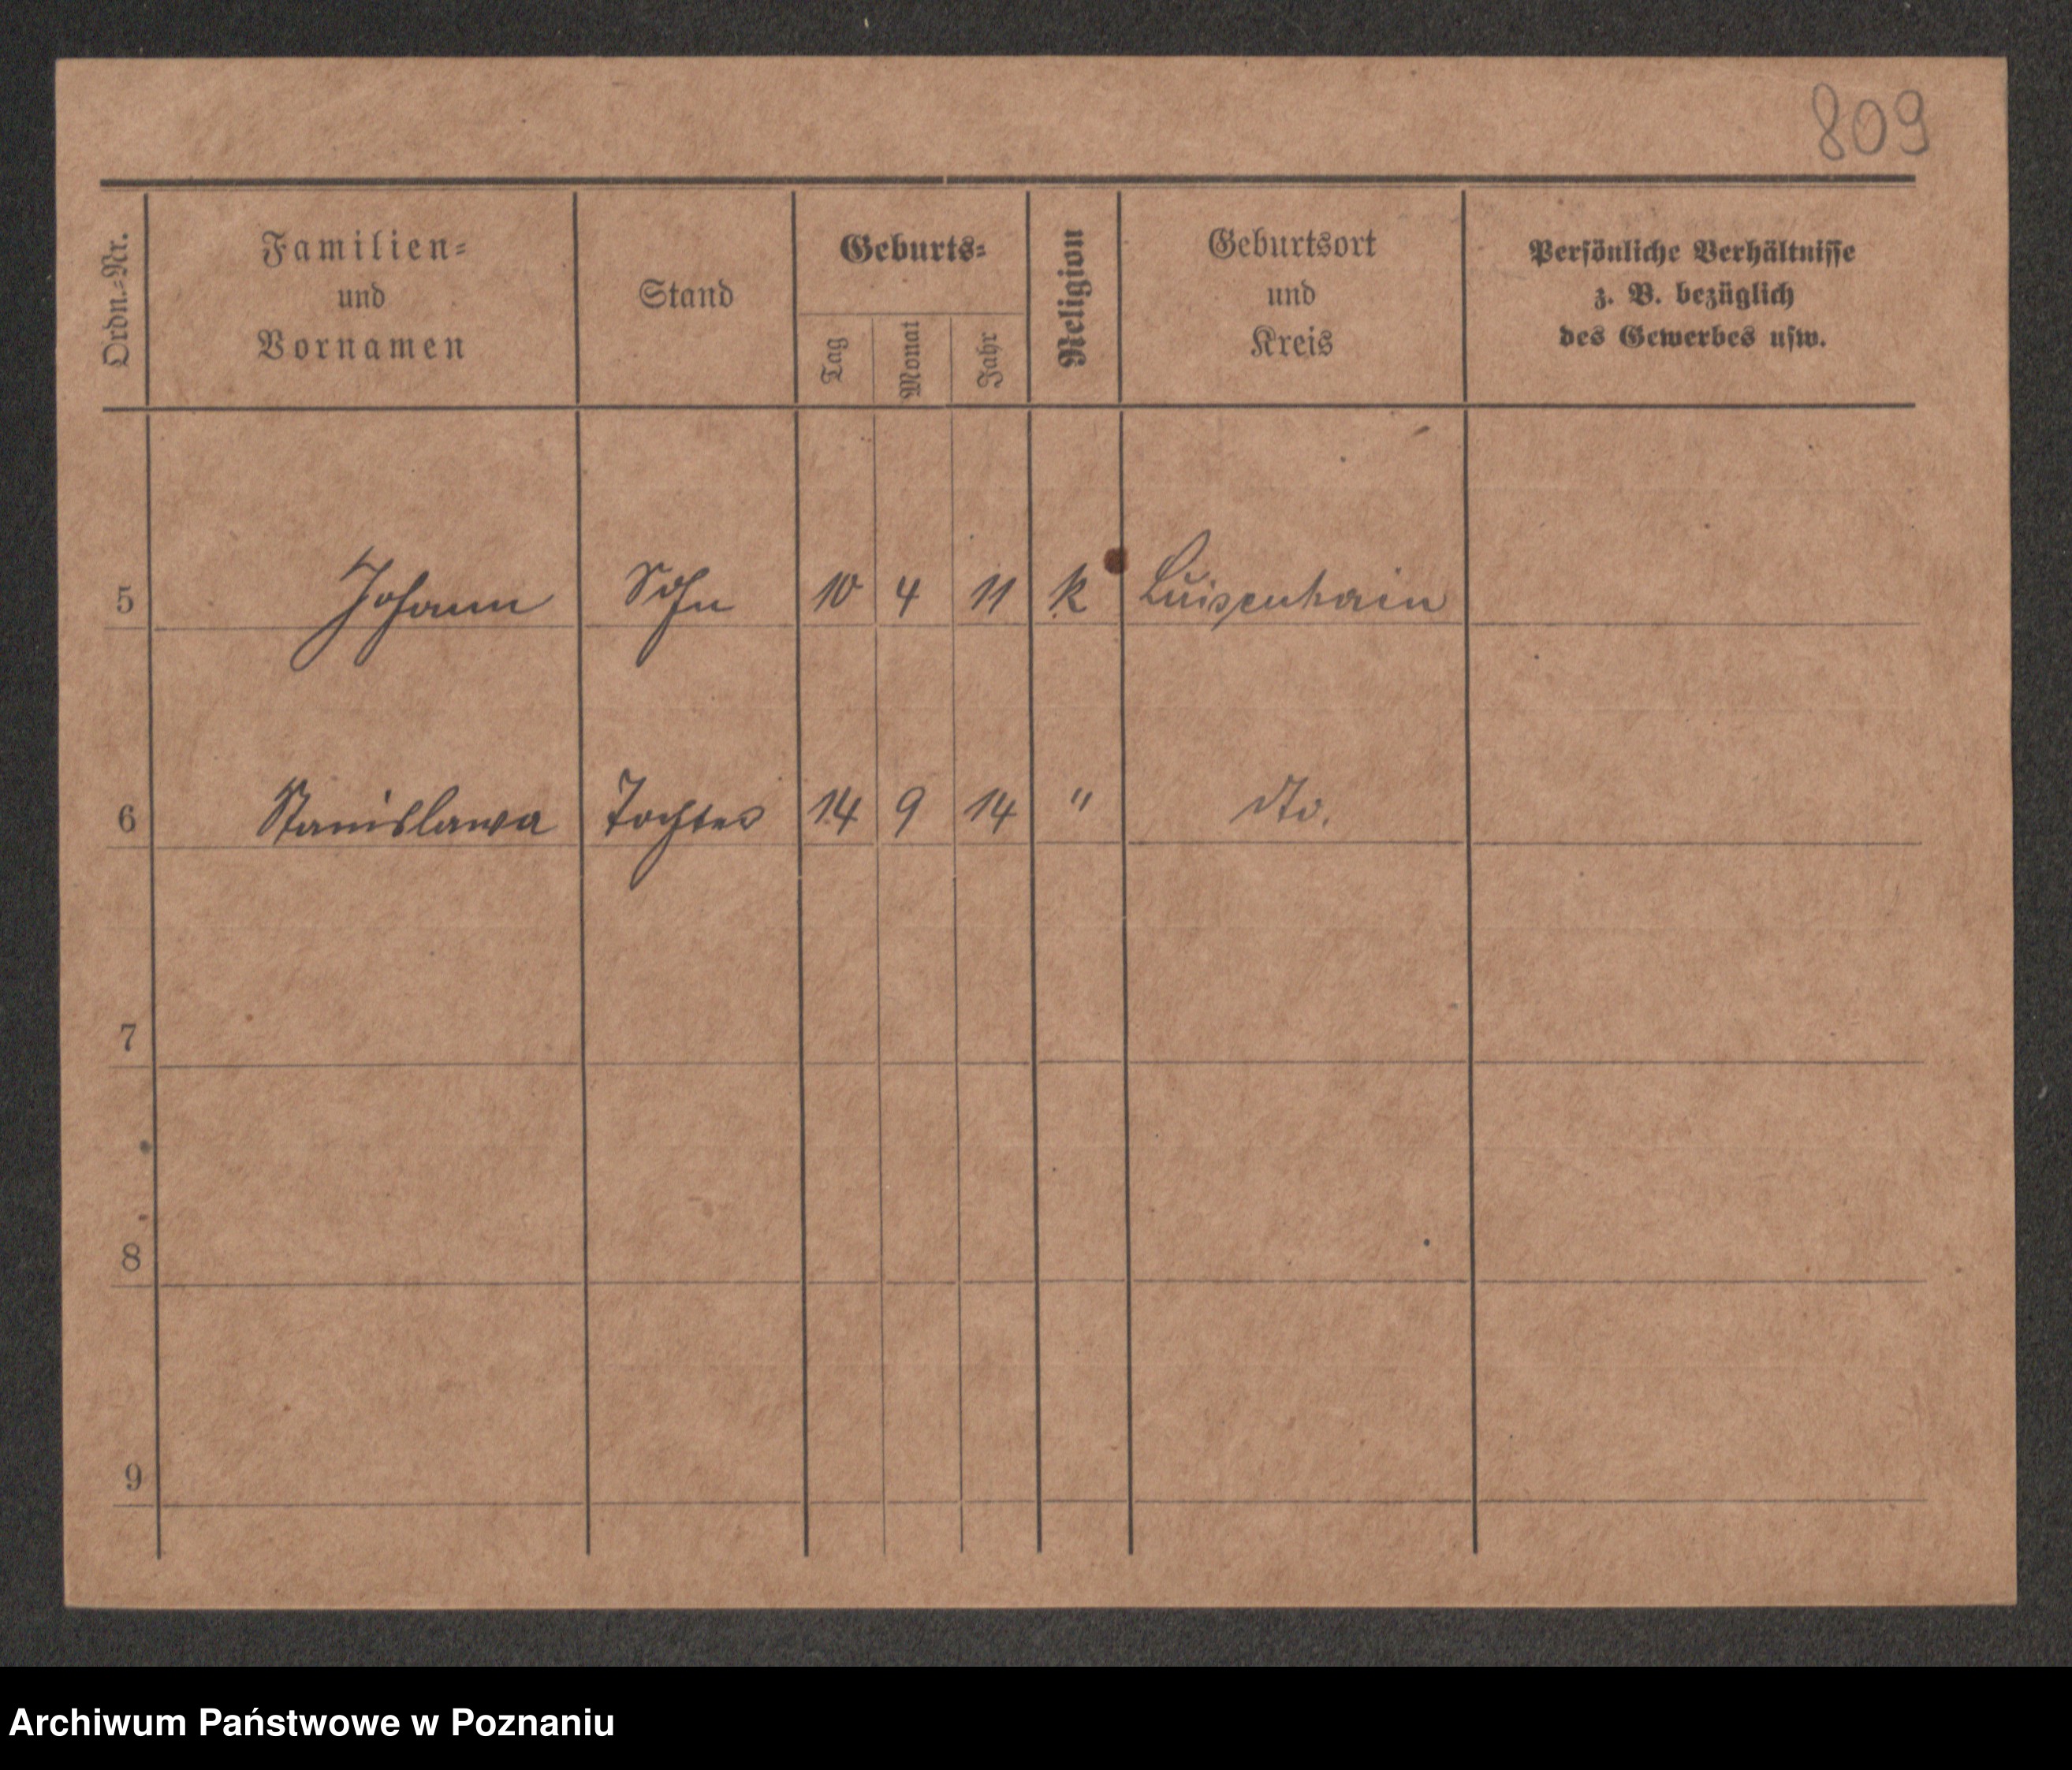 809
Ordn.-Nr.
Familien-
und
Vornamen
Stand
Geburts-
Tag
Monat
Jahr
Religion
Geburtsort
und
Kreis
Persönliche Verhältnisse
z. B. bezüglich
des Gewerbes usw.
5 Johann Sohn 10 4 11 k Luisenhain
6 Stanislawa Tochter 14 9 14 " dto.
7
8
9
Archiwum Państwowe w Poznaniu